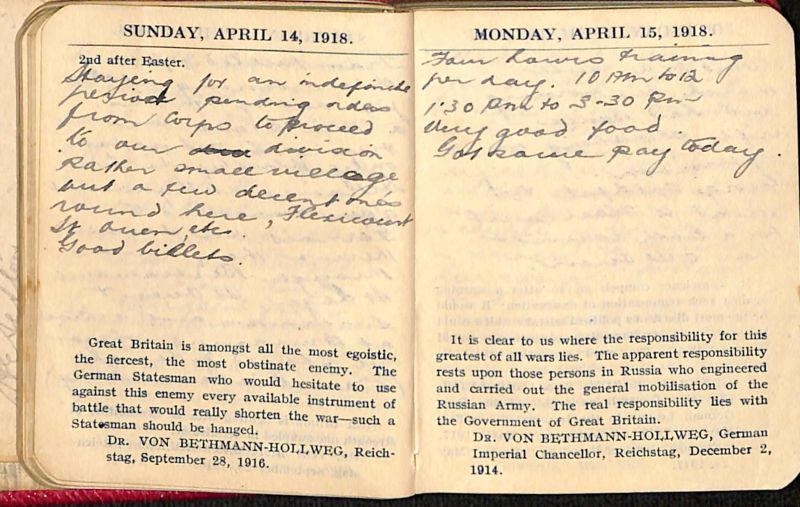 SUNDAY, APRIL 14, 1918.
2nd after Easter.
Staying for an indefinite
period pending orders
from Corps to proceed
to our division
Rather small village
but a few decent ones
round here, Flexicourt
St Ouen, etc.
Good billets.
Great Britain is amongst all the most egoistic,
the fiercest, the most obstinate enemy. The
German Statesman who would hesitate to use
against this enemy every available instrument of
battle that would really shorten the war—such a
Statesman should be hanged.
DR. VON BETHMANN-HOLLWEG, Reich-
stag, September 28, 1916.
MONDAY, APRIL 15, 1918.
Four hours training
per day. 10 Am to 12
1.30 Pm to 3-30 Pm
Very good food.
Got some pay today.
It is clear to us where the responsibility for this
greatest of all wars lies. The apparent responsibility
rests upon those persons in Russia who engineered
and carried out the general mobilisation of the
Russian Army. The real responsibility lies with
the Government of Great Britain.
DR. VON BETHMANN-HOLLWEG, German
Imperial Chancellor, Reichstag, December 2,
1914.